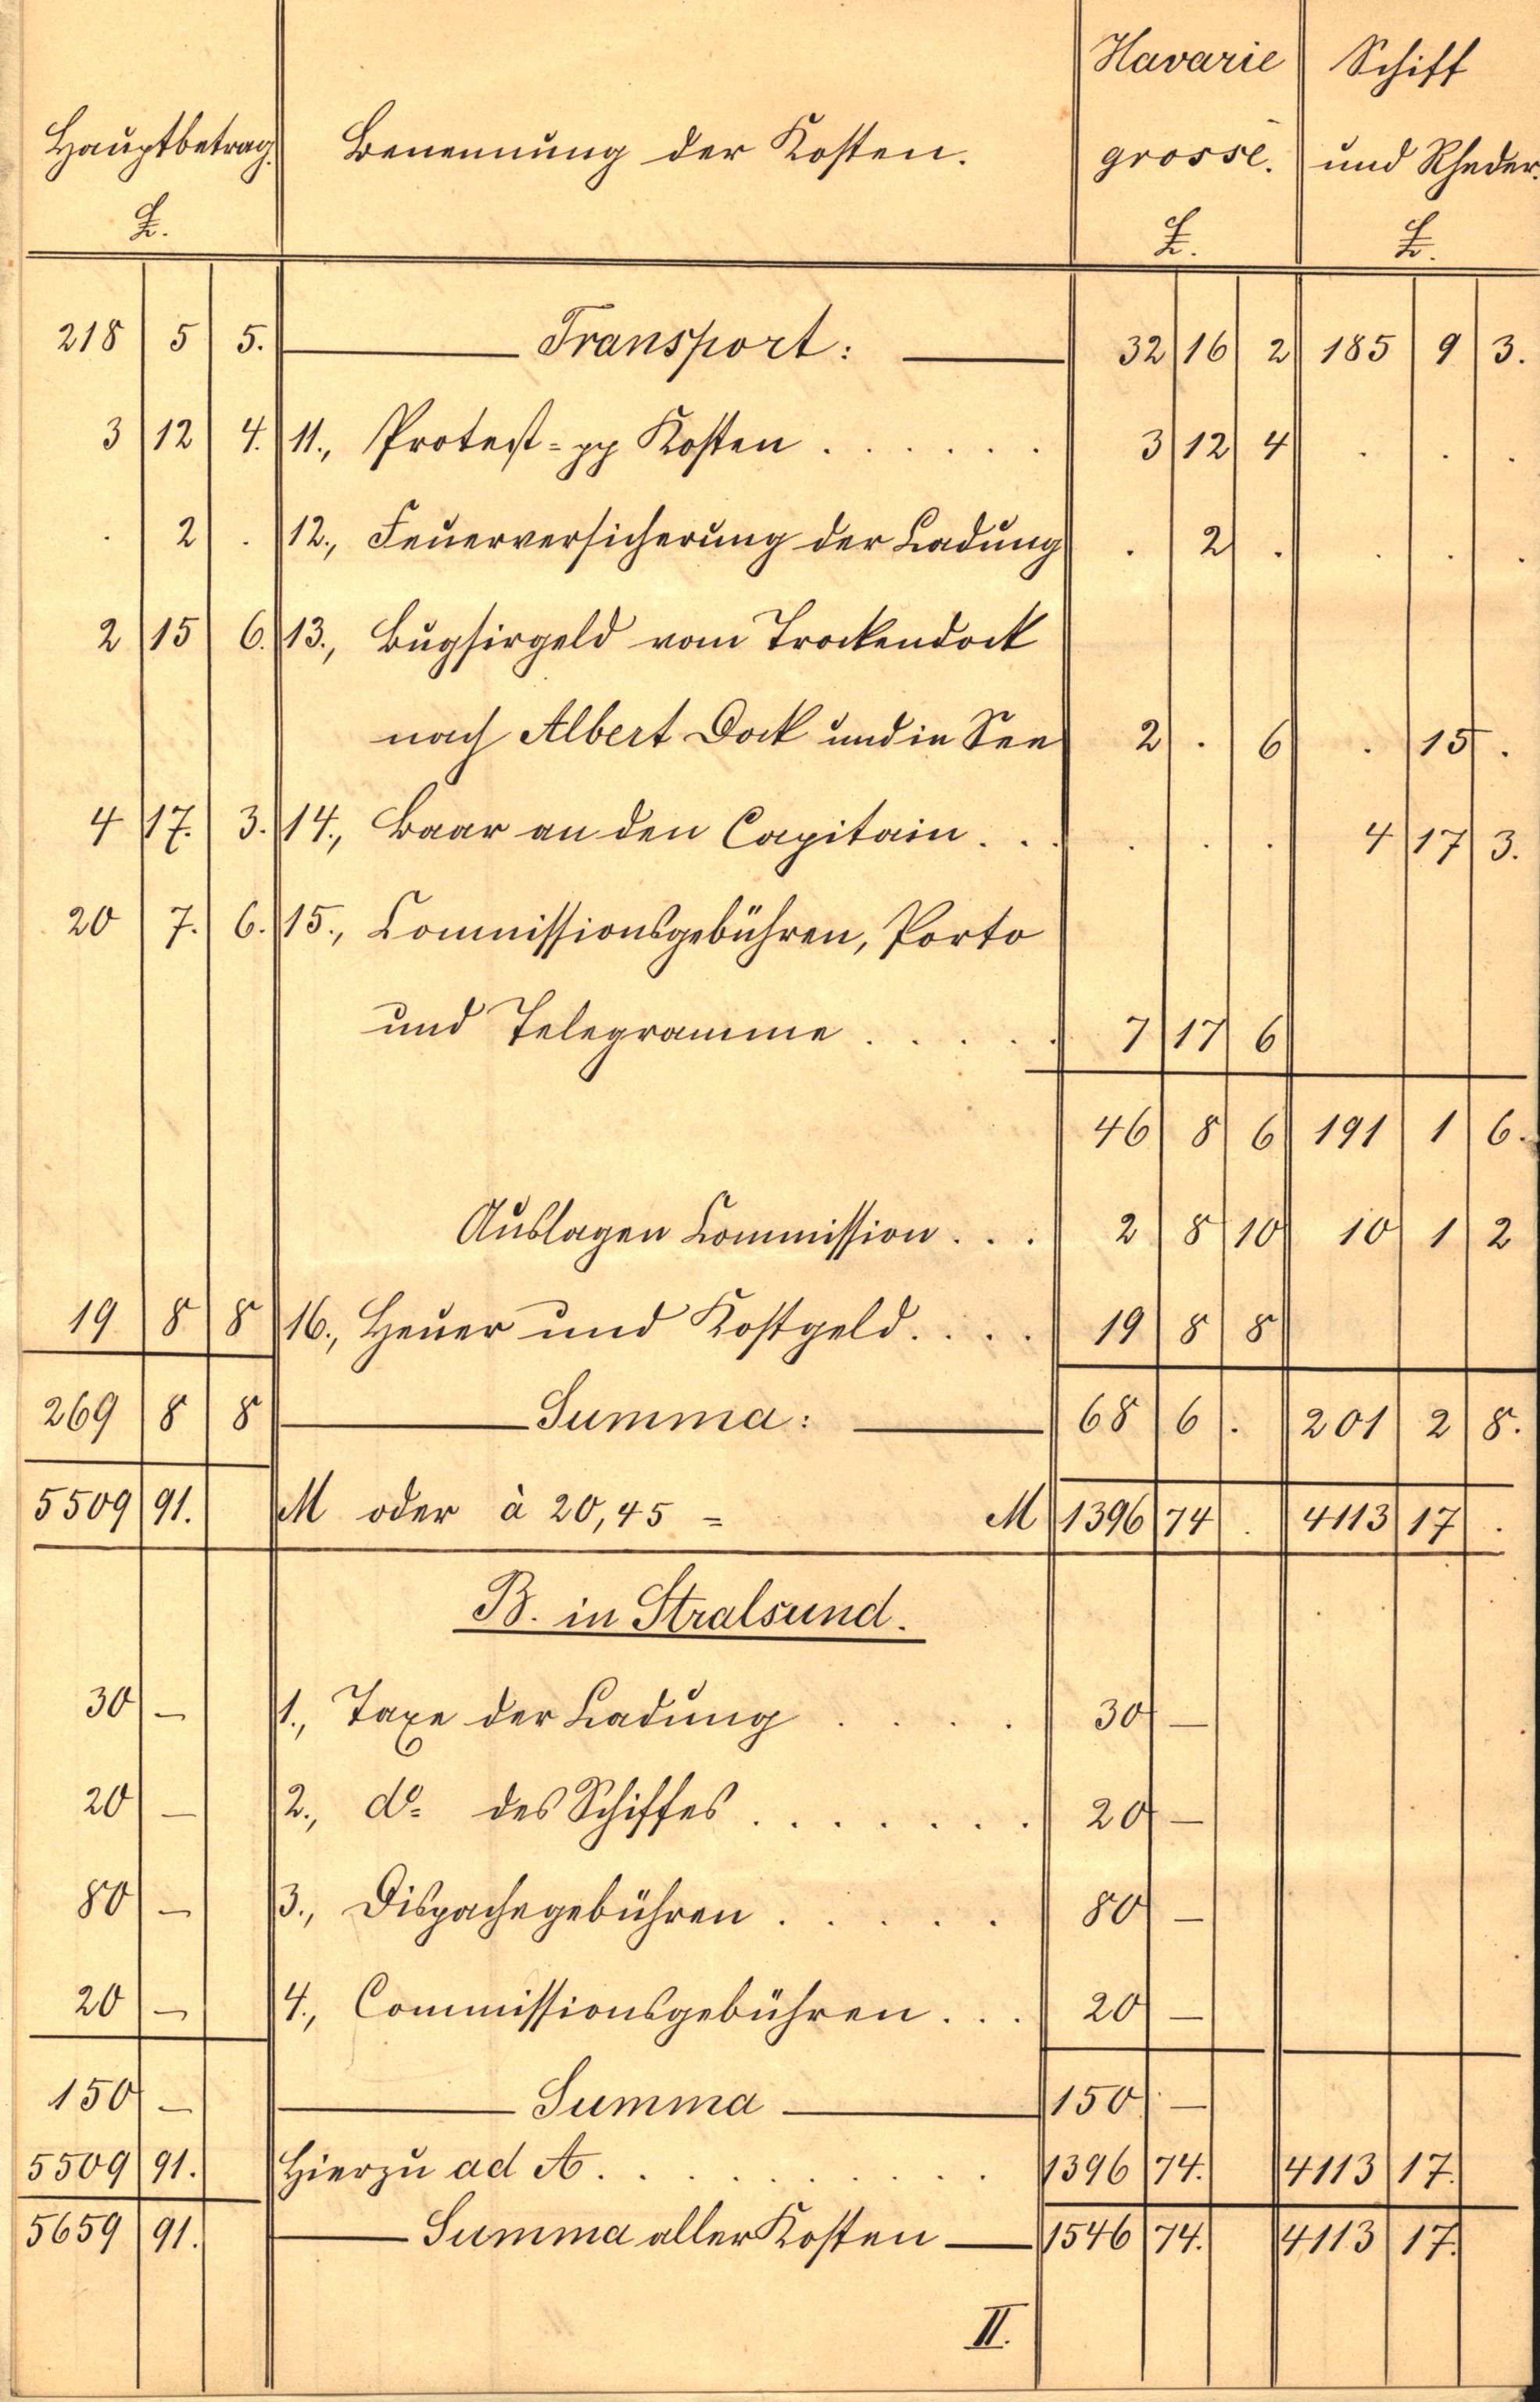 Havarie Schiff
Hauptbetrag. Benennung der Kosten. grosse. und Rheder.
£. £. £.
218 5 5. Transport: 32 16 2 185 9 3.
3 12 4. 11., Protest= pp Kosten . . . . . . 3 12 4 . . .
. 2 . 12., Feuerversicherung der Ladung . 2 . . . .
2 15 6. 13., Bugsirgeld vom Trockendock
nach Albert Dock und in See 2 . 6 . 15 .
4 17. 3. 14., Baar an den Capitain . . . . . . 4 17 3.
20 7. 6. 15., Commissionsgebühren, Porto
und Telegramme . . . . . 7 17 6
46 8 6 191 1 6.
Auslagen Commission . . . 2 8 10 10 1 2
19 8 8 16., Heuer und Kostgeld. . . . 19 8 8
269 8 8 Summa: 68 6 . 201 2 8.
5509 91. M oder à 20,45 = M 1396 74 . 4113 17 .
B. in Stralsund.
30 — 1., Taxe der Ladung . . . . 30 —
20 — 2., do= des Schiffes . . . . . . . 20 —
80 — 3., Dispachegebühren . . . . . 80 —
20 — 4., Commissionsgebühren . . . 20 —
150 — Summa 150 —
5509 91. Hierzu ad A. . . . . . . . . . 1396 74. 4113 17.
5659 91. Summa aller Kosten 1546 74. 4113 17.
II.